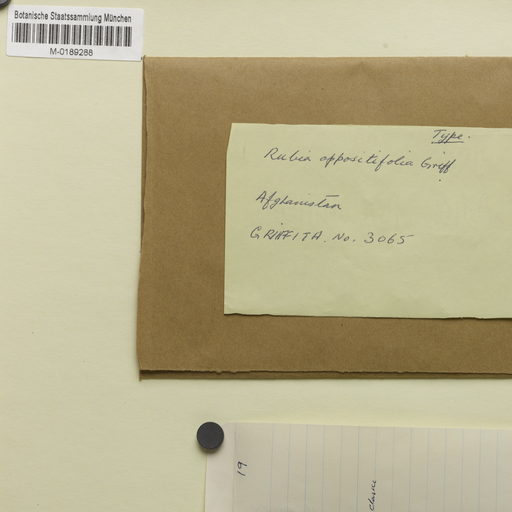 Botanische Staatssammlung München
M-0189288
Type.
Rubia oppositifolia Griff
Afghanistan
GRIFFITH. No. 3065
19